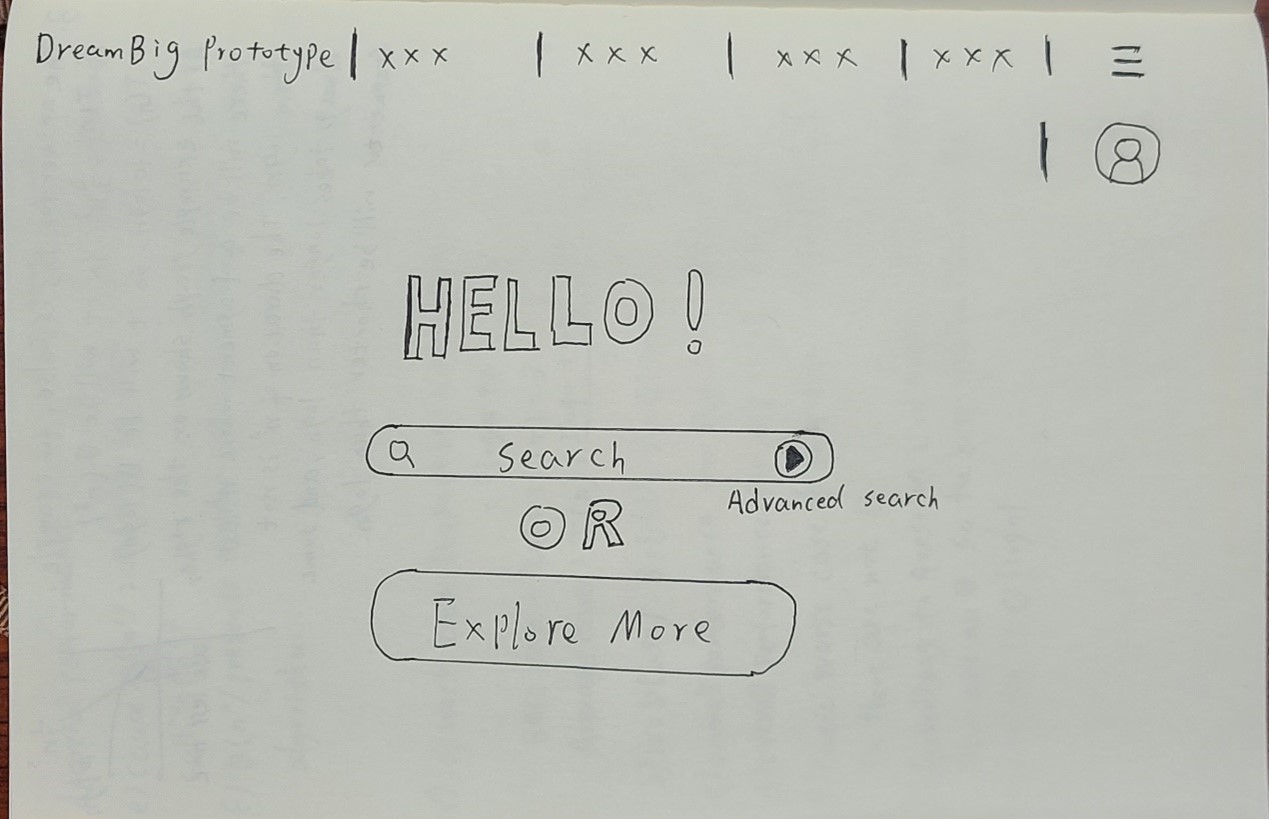 DreamBig Prototype | xxx | xxx | xxx | xxx |
HELLO!
Search
Advanced search
OR
Explore More